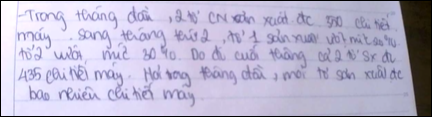 -Trong tháng đầu, 2 tổ CN sản xuất đc 300 chi tiết
máy. sang tháng thứ 2, tổ 1 sản xuất vượt mức
tổ 2 vượt mức 30%. Do đó cuối tháng cả 2 tổ sx đc
435 chi tiết máy. Hỏi trong tháng đầu, mỗi tổ sản xuất đc
bao nhiêu chi tiết máy